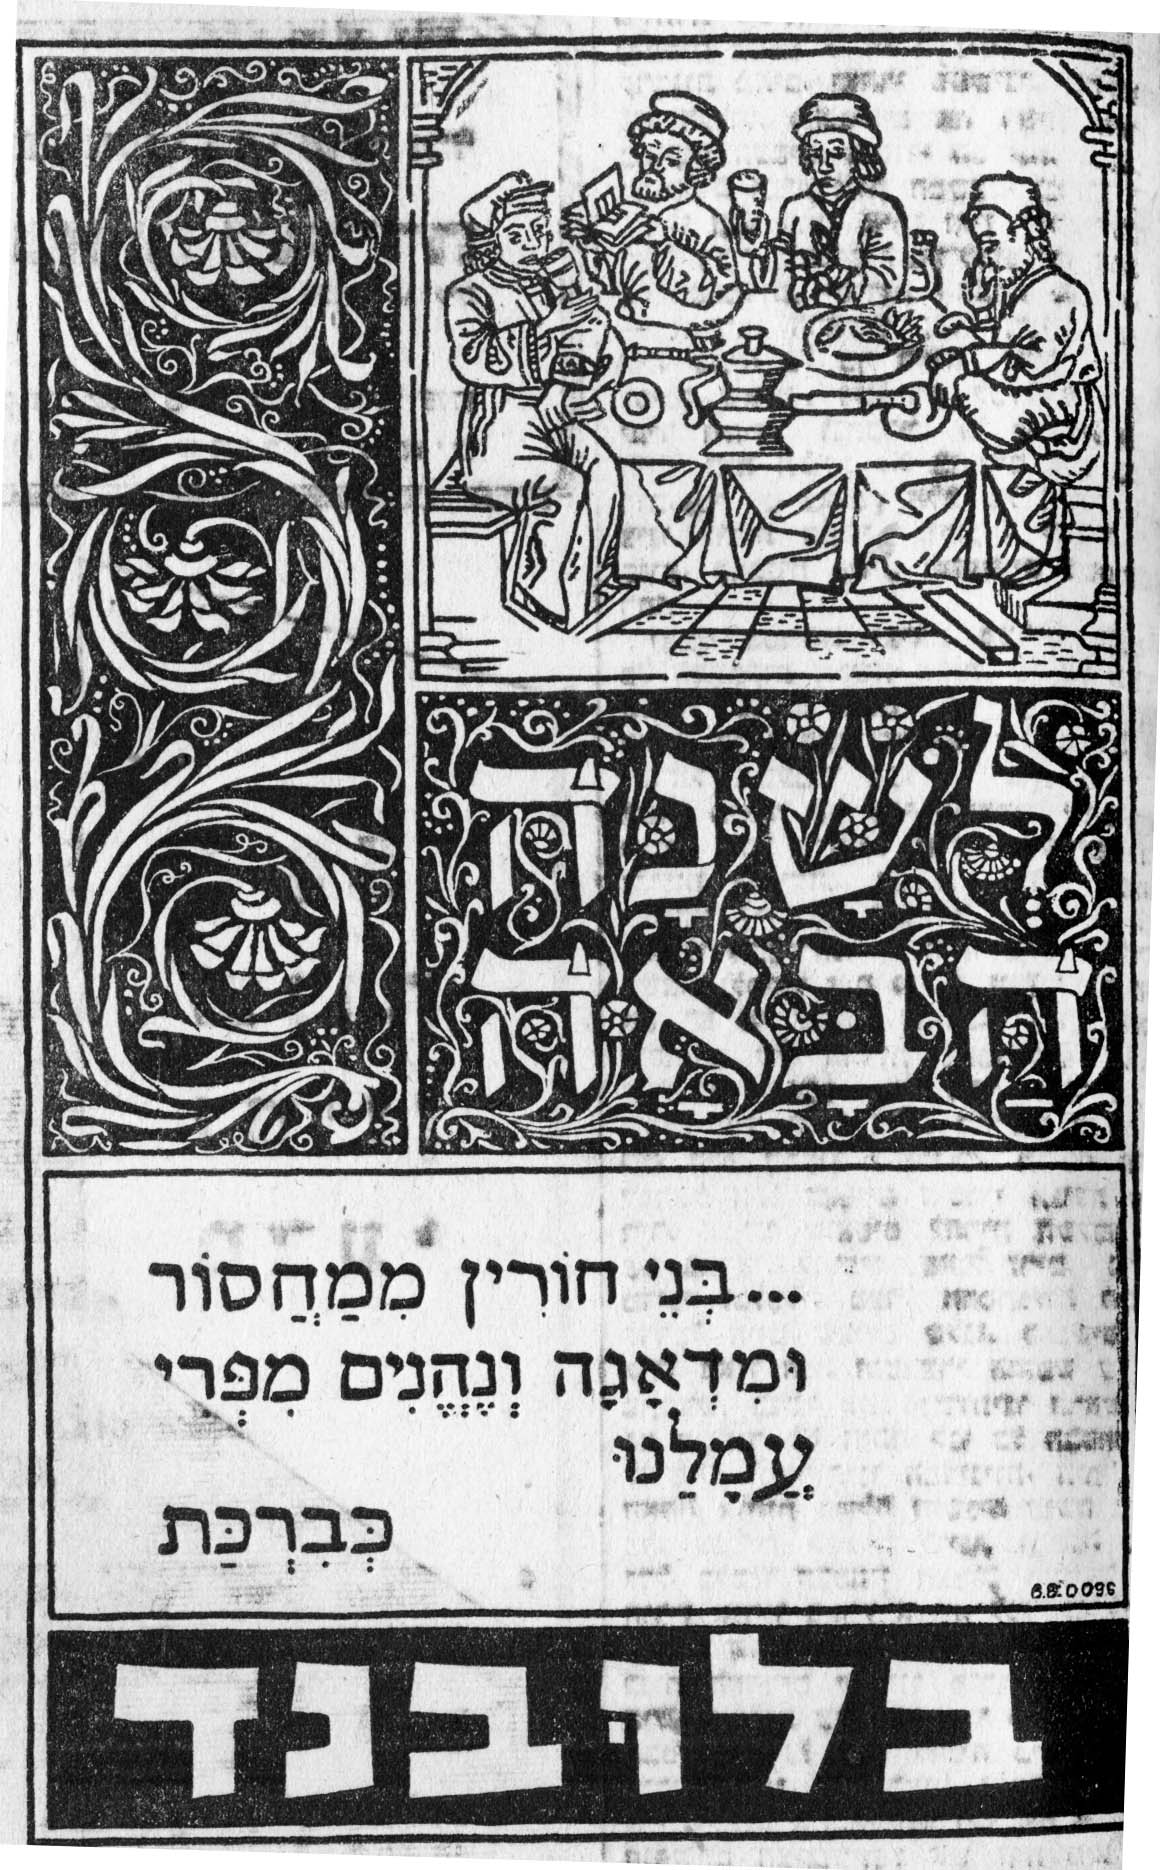 לְשָׁנָה
הַבָּאָה
...בְּנֵי חוֹרִין מִמַּחֲסוֹר
וּמִדְאָגָה וְנֶהֱנִים מִפְּרִי
עֲמָלֵנוּ
כְּבִרְכַּת
B.B. 0096
בלובנד